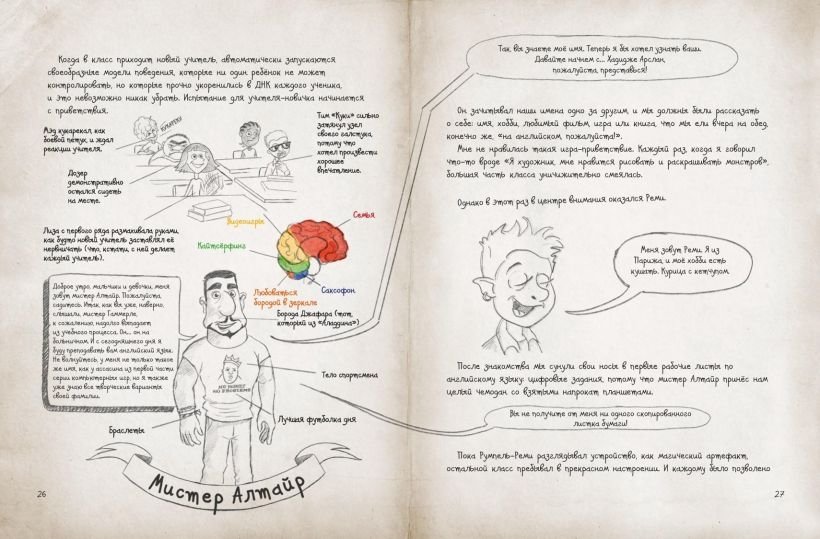 Когда в класс приходит новый учитель, автоматически запускаются
своеобразные модели поведения, которые ни один ребёнок не может
контролировать, но которые прочно укоренились в ДНК каждого ученика,
и это невозможно никак убрать. Испытание для учителя-новичка начинается
с приветствия.
Мэд кукарекал, как
боевой петух, и ждал
реакции учителя.
КУКАРЕКУ
Тим «Куки» сильно
затянул узел
своего галстука,
потому что
хотел произвести
хорошее
впечатление.
Дозер
демонстративно
остался сидеть
на месте.
Лиза с первого ряда размахивала руками,
как будто новый учитель заставлял её
нервничать (что, кстати, с ней делает
каждый учитель).
Видеоигры
Семья
Кайтсёрфинг
Саксофон
Любоваться
бородой в зеркале
Доброе утро, мальчики и девочки, меня
зовут мистер Алтайр. Пожалуйста,
садитесь. Итак, как вы уже, наверно,
слышали, мистер Гаммерле,
к сожалению, надолго выпадает
из учебного процесса. Он... он на
больничном. И с сегодняшнего дня я
буду преподавать вам английский язык.
Не волнуйтесь, у меня не только такое
же имя, как у ассасина из первой части
серии компьютерных игр, но я также
уже знаю все творческие варианты
своей фамилии.
Борода Джафара (тот,
который из «Аладдина»)
NO MONEY
NO PROBLEMS
Тело спортсмена
Лучшая футболка дня
Браслеты
Мистер Алтайр
26
Так, вы знаете моё имя. Теперь я бы хотел узнать ваши.
Давайте начнём с... Хадидже Арслан,
пожалуйста, представься!
Он зачитывал наши имена одно за другим, и мы должны были рассказать
о себе: имя, хобби, любимый фильм, игра или книга, что мы ели вчера на обед,
конечно же, «на английском, пожалуйста!».
Мне не нравилась такая игра-приветствие. Каждый раз, когда я говорил
что-то вроде «Я художник, мне нравится рисовать и раскрашивать монстров»,
большая часть класса уничижительно смеялась.
Однако в этот раз в центре внимания оказался Реми.
Меня зовут Реми. Я из
Парижа, и моё хобби есть
кушать. Курица с кетчупом.
После знакомства мы сунули свои носы в первые рабочие листы по
английскому языку: цифровые задания, потому что мистер Алтайр принёс нам
целый чемодан со взятыми напрокат планшетами.
Вы не получите от меня ни одного скопированного
листка бумаги!
Пока Румпель-Реми разглядывал устройство, как магический артефакт,
остальной класс пребывал в прекрасном настроении. И каждому было позволено
27